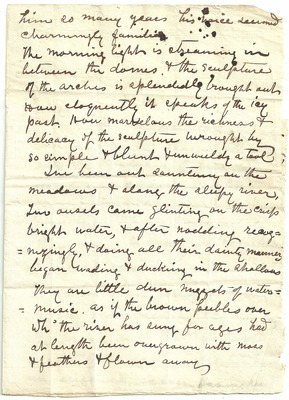 him so many years his voice seemed
charmingly familiar
The morning light is streaming in
between the domes, & the sculpture
of the arches is splendidly brought out.
How eloquently it speaks of the icy
past. How marvelous the richness &
delicacy of the sculpture wrought by
so simple & blunt & unwieldy a tool
Ive been out sauntering on the
meadows & along the sleepy river,
Two ousels came glinting on the crisp
bright water, & after nodding recog=
=nizingly, & doing all their dainty manners
began wading & ducking in the shallows
They are little dun nuggets of water=
=music, as if the brown pebbles over
wh' the river has sung for ages had
at length been overgrown with moss
& feathers & flown away